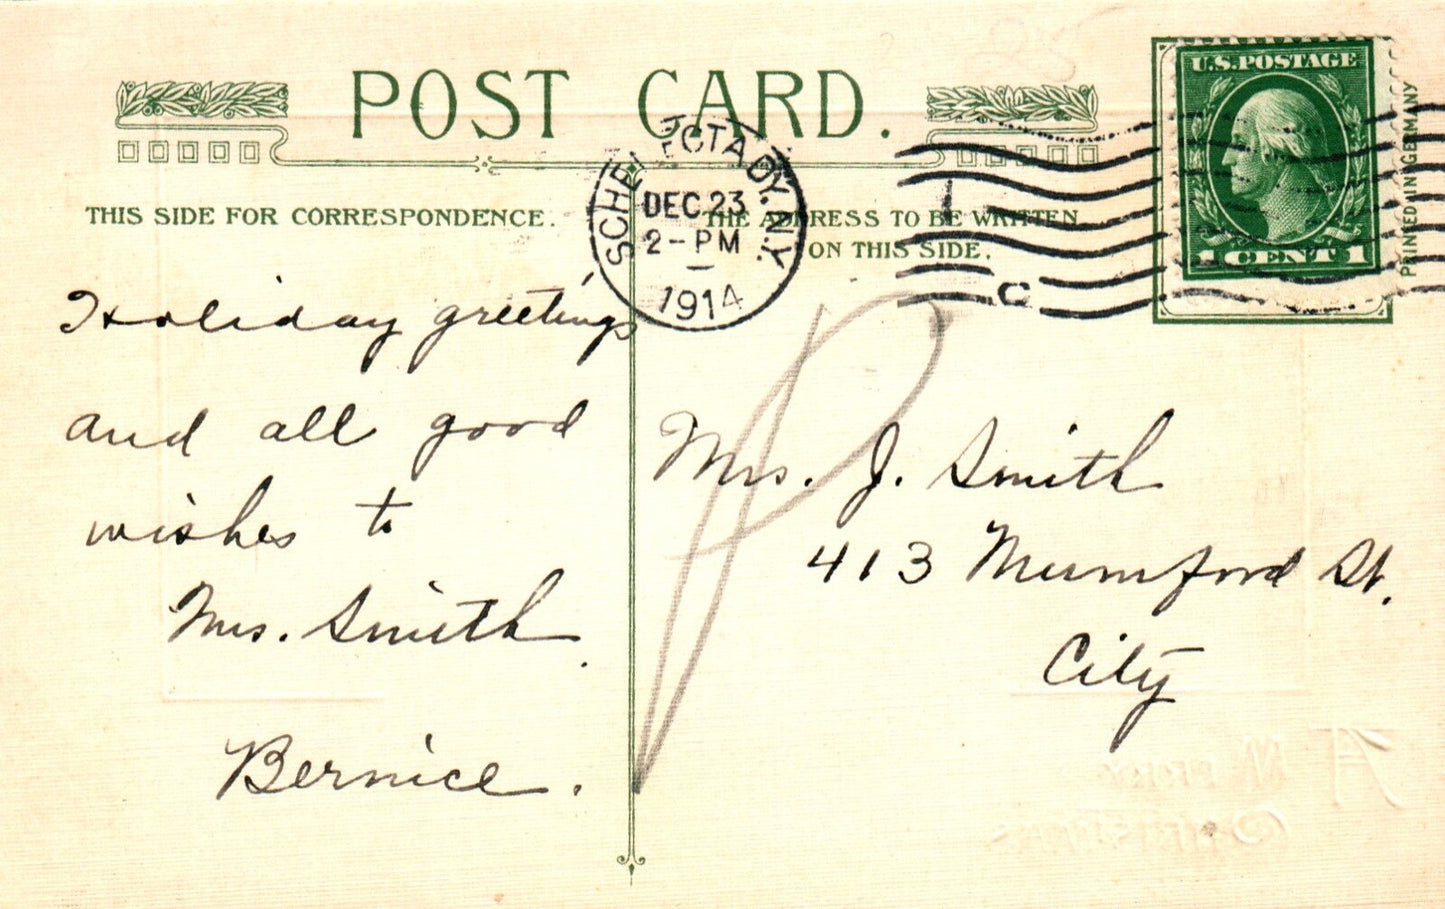 POST CARD.
THIS SIDE FOR CORRESPONDENCE.
THE ADDRESS TO BE WRITTEN
ON THIS SIDE.
SCHENECTADY, N.Y.
DEC 23
2-PM
1914
C
U.S. POSTAGE
1 CENT 1
PRINTED IN GERMANY
Holiday greetings
and all good
wishes to
Mrs. Smith.
Bernice.
Mrs. J. Smith
413 Mumford St.
City
A
MERRY
CHRISTMAS